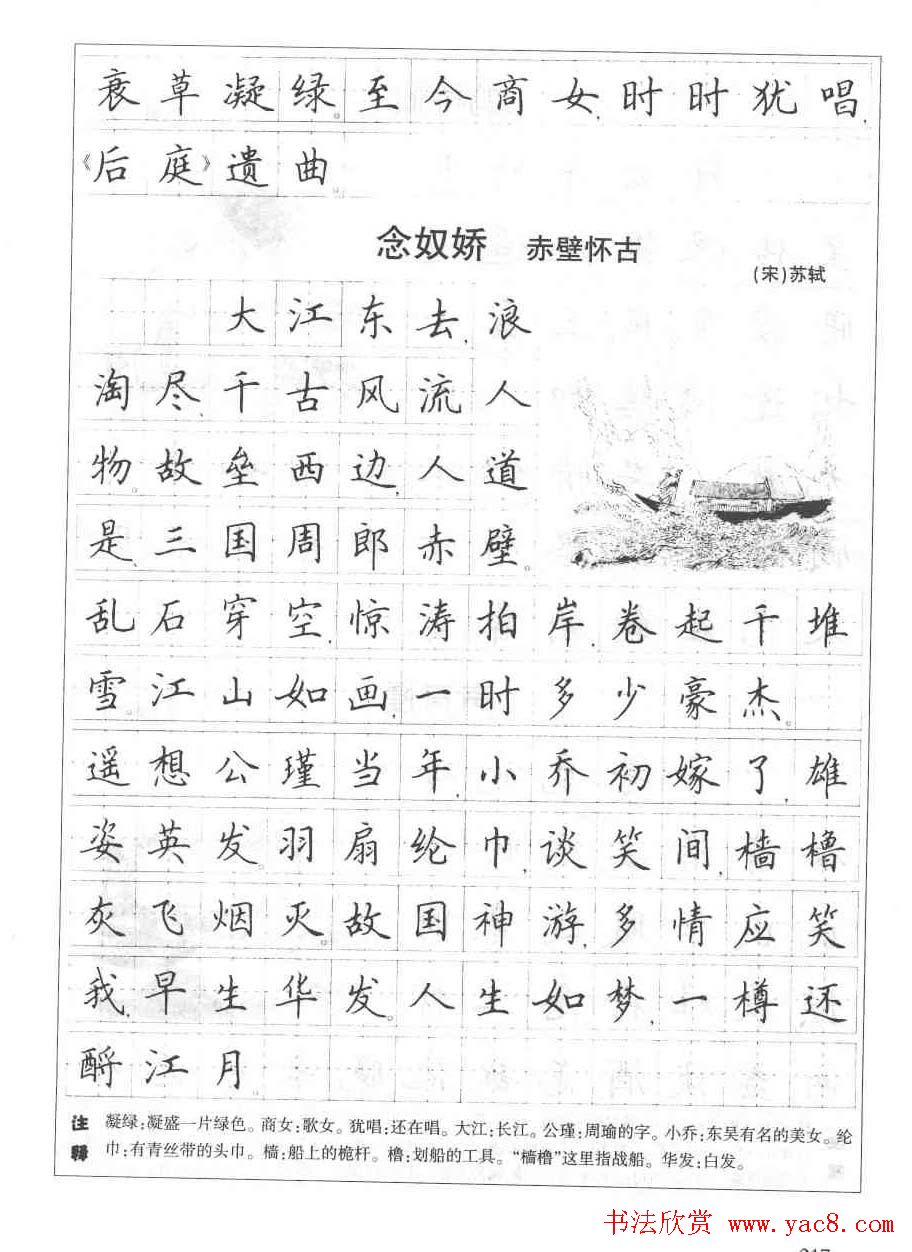 衰草凝绿。至今商女,时时犹唱,
《后庭》遗曲。
念奴娇 赤壁怀古
(宋)苏轼
大江东去,浪
淘尽,千古风流人
物。故垒西边,人道
是,三国周郎赤壁。
乱石穿空,惊涛拍岸,卷起千堆
雪。江山如画,一时多少豪杰。
遥想公瑾当年,小乔初嫁了,雄
姿英发。羽扇纶巾,谈笑间,樯橹
灰飞烟灭。故国神游,多情应笑
我,早生华发。人生如梦,一樽还
酹江月。
注释
凝绿:凝盛一片绿色。商女:歌女。犹唱:还在唱。大江:长江。公瑾:周瑜的字。小乔:东吴有名的美女。纶
巾:有青丝带的头巾。樯:船上的桅杆。橹:划船的工具。“樯橹”这里指战船。华发:白发。
书法欣赏 www.yac8.com